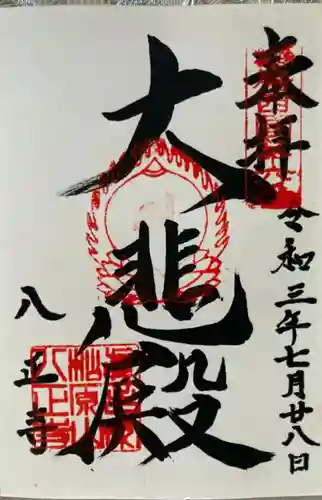 奉拝
令和三年七月廿八日
大悲殿
八正寺